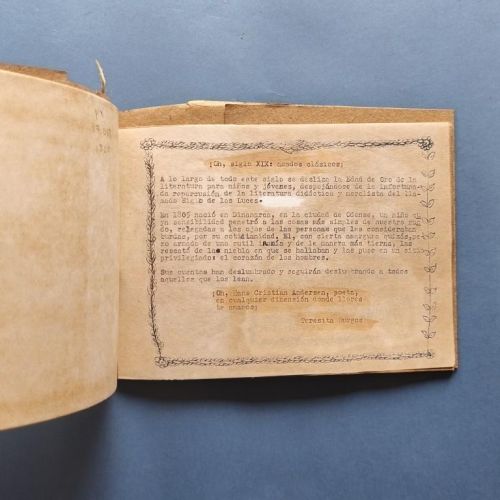 ¡Oh, siglo XIX: amados clásicos;
A lo largo de todo este siglo se desliza la Edad de Oro de la
literatura para niños y jóvenes, despojándose de la infortuna-
da repercusión de la literatura didáctica y moralista del lla-
mado Siglo de las Luces.
En 1805 nació en Dinamarca, en la ciudad de Odense, un niño
sensibilidad penetró a las cosas más simples de nuestro mun-
do, relegadas a los ojos de las personas que las consideraban
burdas, por su cotidianidad. Él, con cierta amargura quizás, pe-
ro armado de una sutil y de la manera más tierna, las
rescató de la niebla en que se hallaban y las puso en un sitio
privilegiado: el corazón de los hombres.
Sus cuentos han deslumbrado y seguirán deslumbrando a todos
aquellos que los lean.
¡Oh, Hans Cristian Andersen, poeta;
en cualquier dimensión donde llores
te amamos;
Teresita Burgos